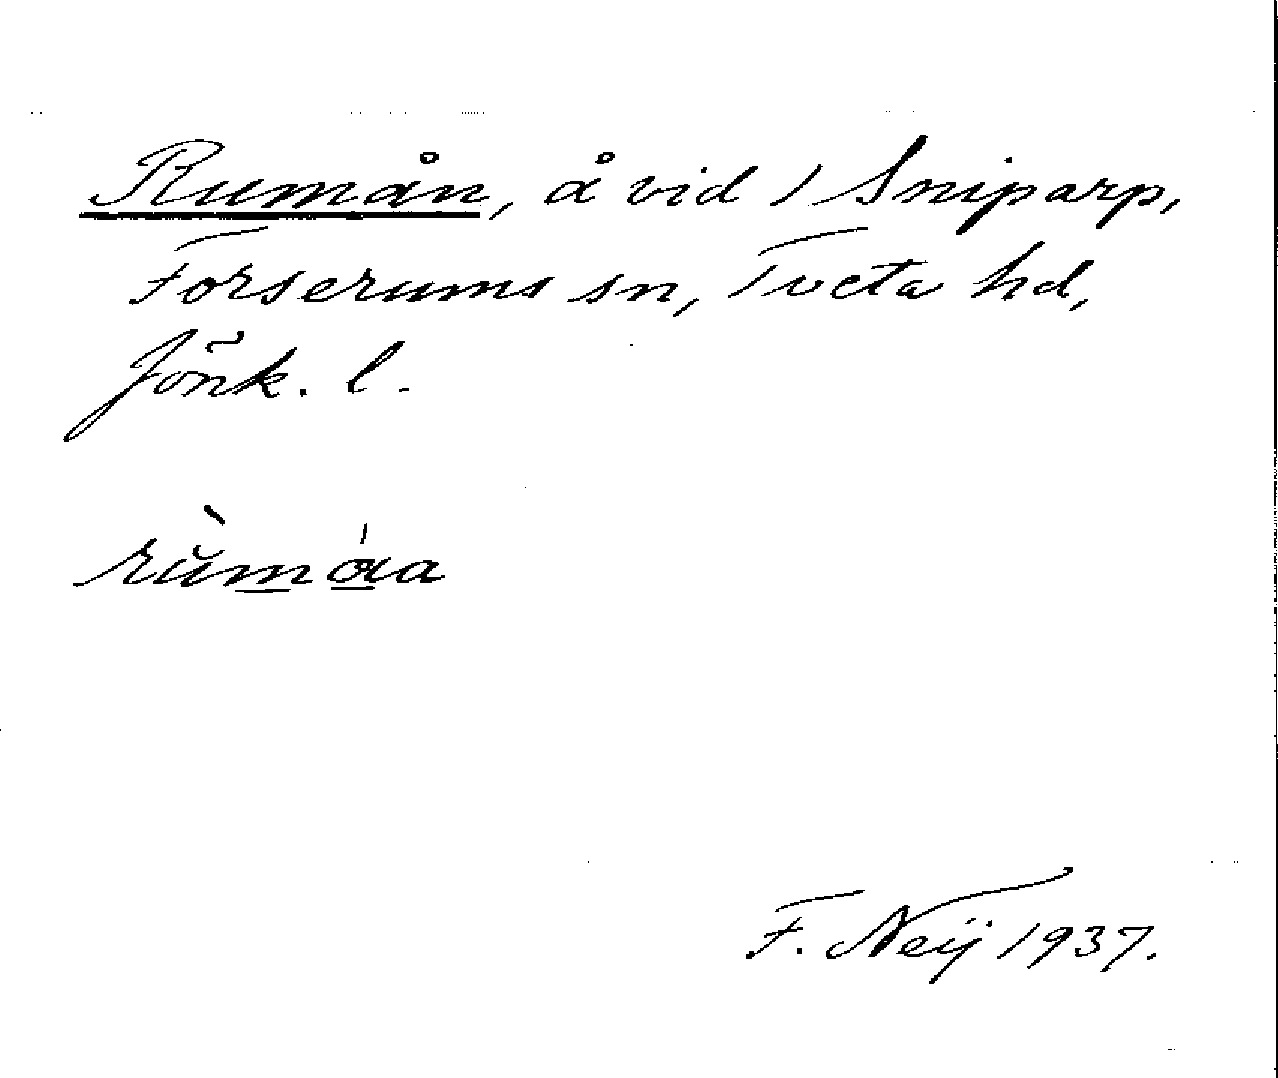 Rumån, å vid / Sniparp,
Forserums sn, Tveta hd,
Jönk. l.
F. Neij 1937.